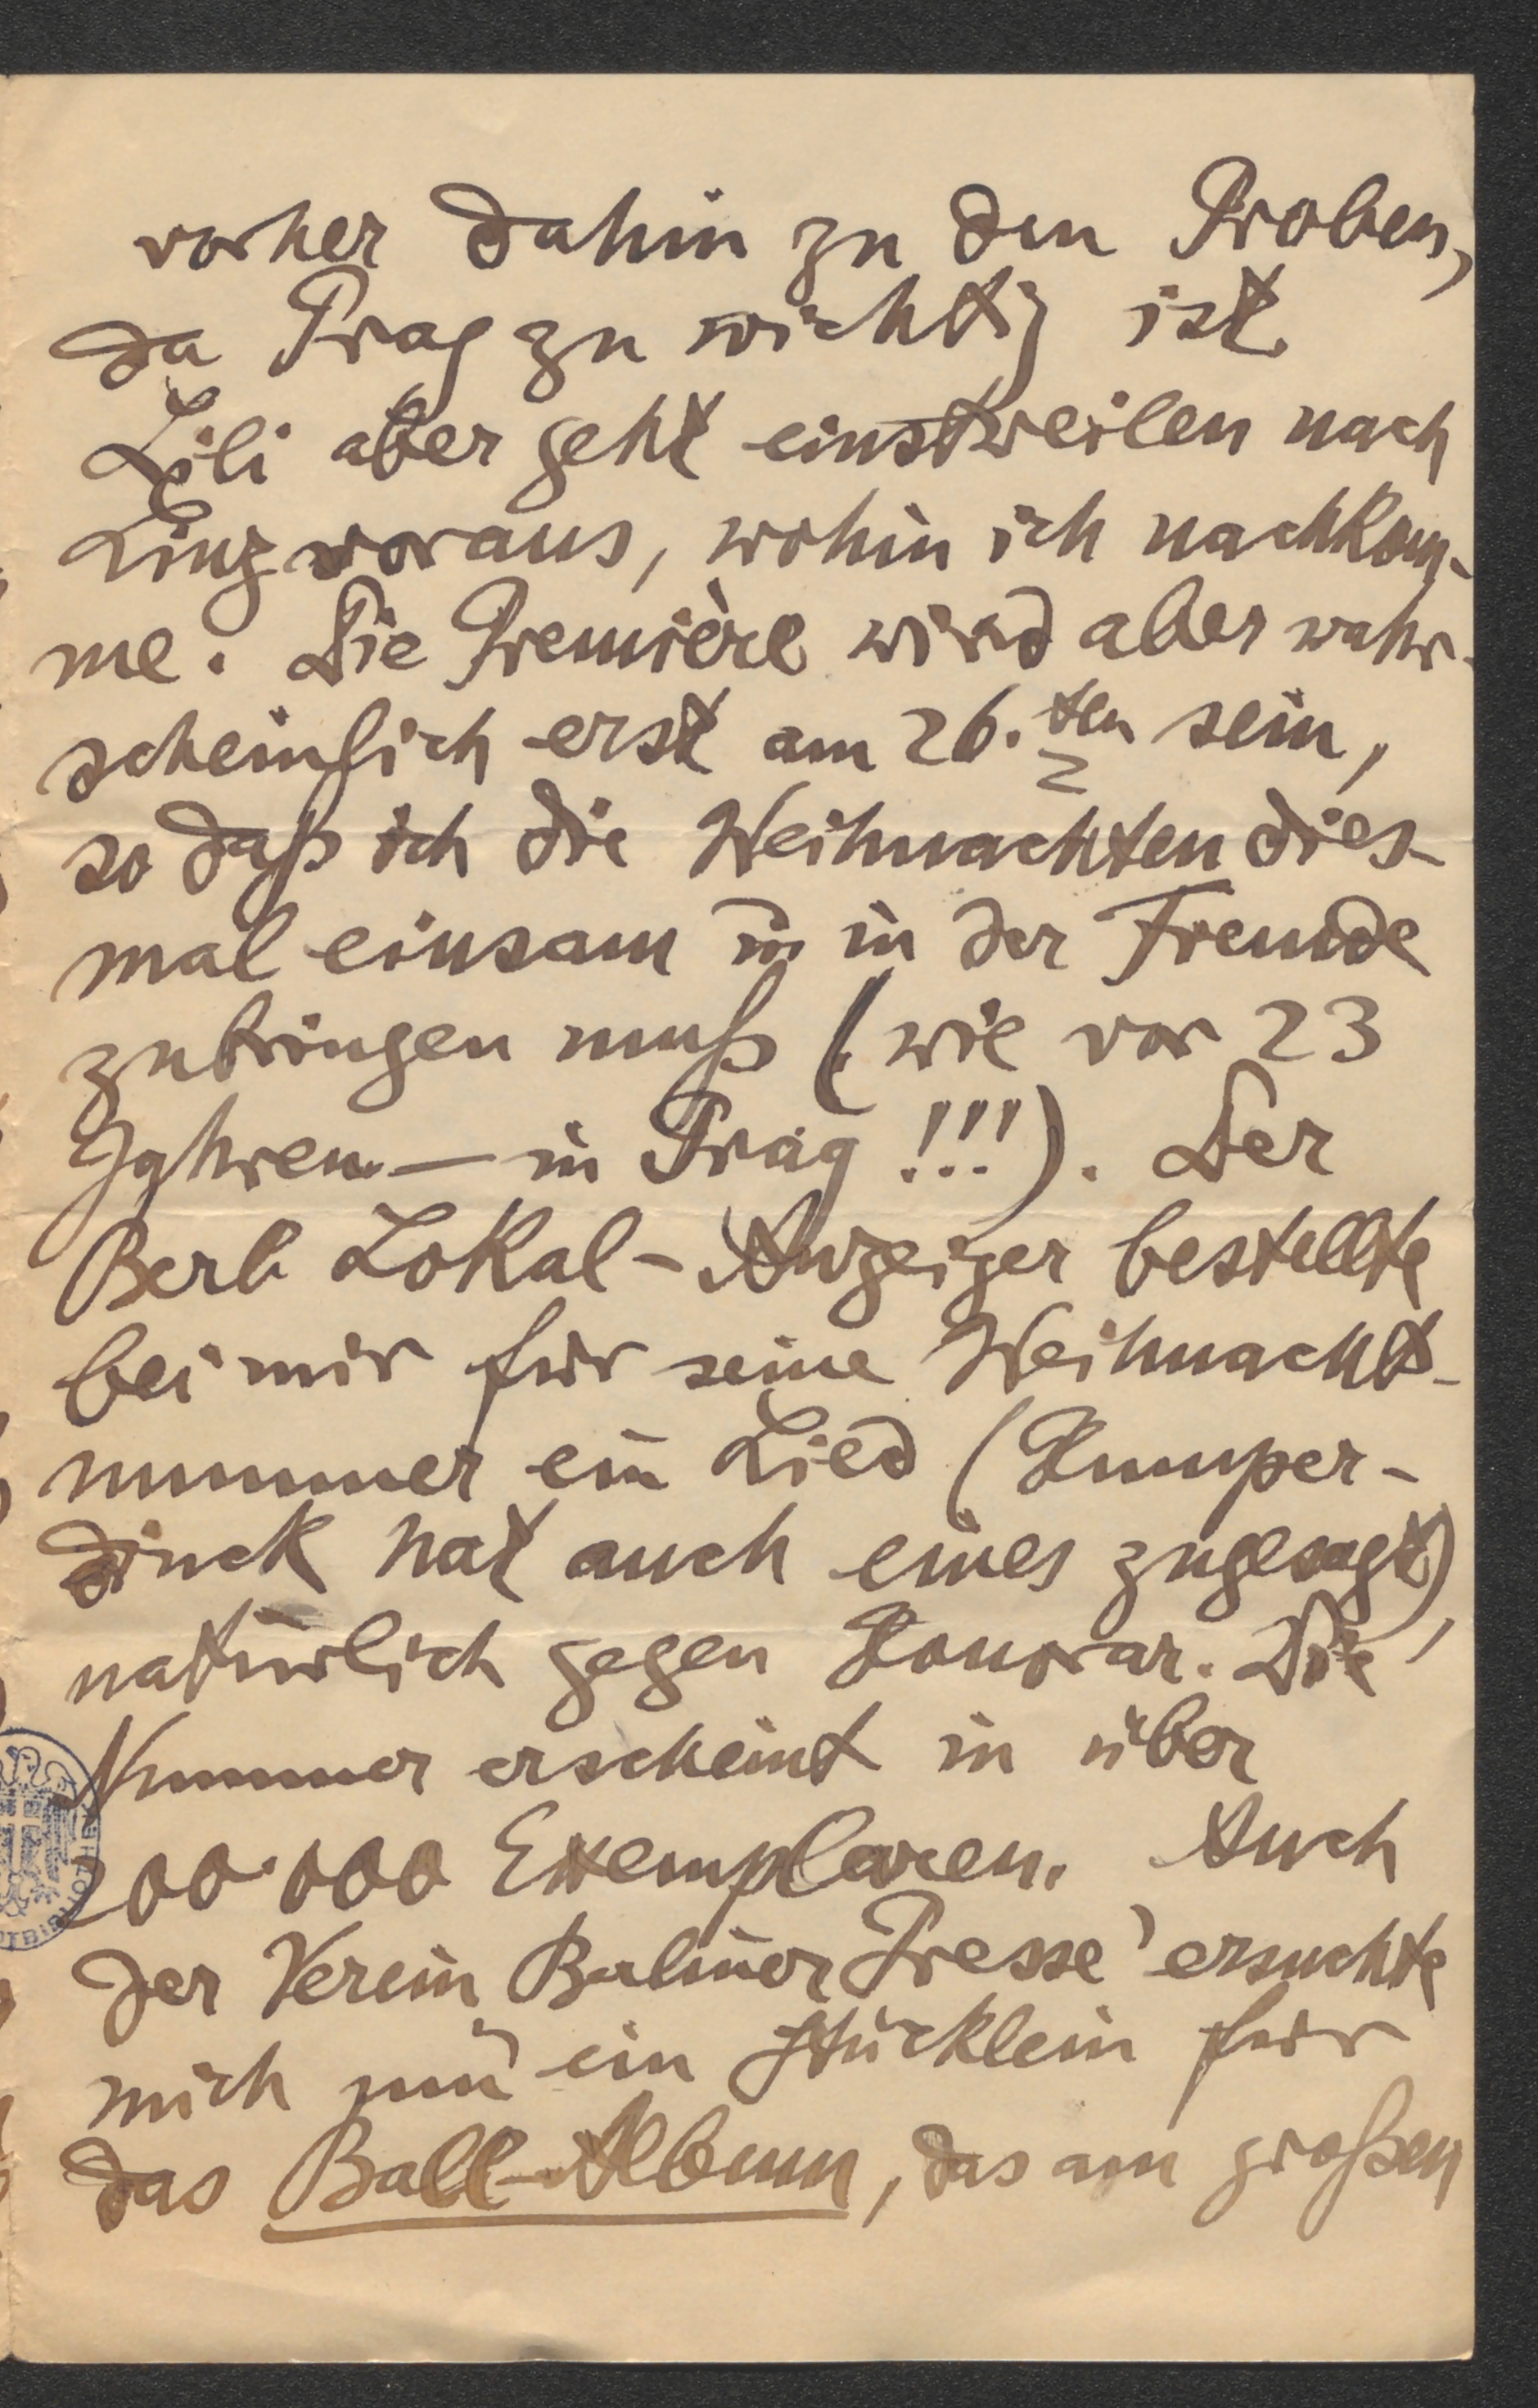 vorher dahin zu den Proben,
da Prag zu wichtig ist.
Lili aber geht einstweilen nach
Linz voraus, wohin ich nachkom-
me. Die Première wird aber wahr-
scheinlich erst am 26.ten sein,
so daß ich die Weihnachten dies-
mal einsam in der Fremde
zubringen muß (wie vor 23
Jahren — in Prag!!!). Der
Berl. Lokal-Anzeiger bestellte
bei mir für seine Weihnacht-
nummer ein Lied (Humper-
dinck hat auch eines zugesagt),
natürlich gegen Honorar. Die
Nummer erscheint in über
200.000 Exemplaren. Auch
der Verein Berliner Presse ersuchte
mich um ein Stücklein für
das Ball-Album, das am großen